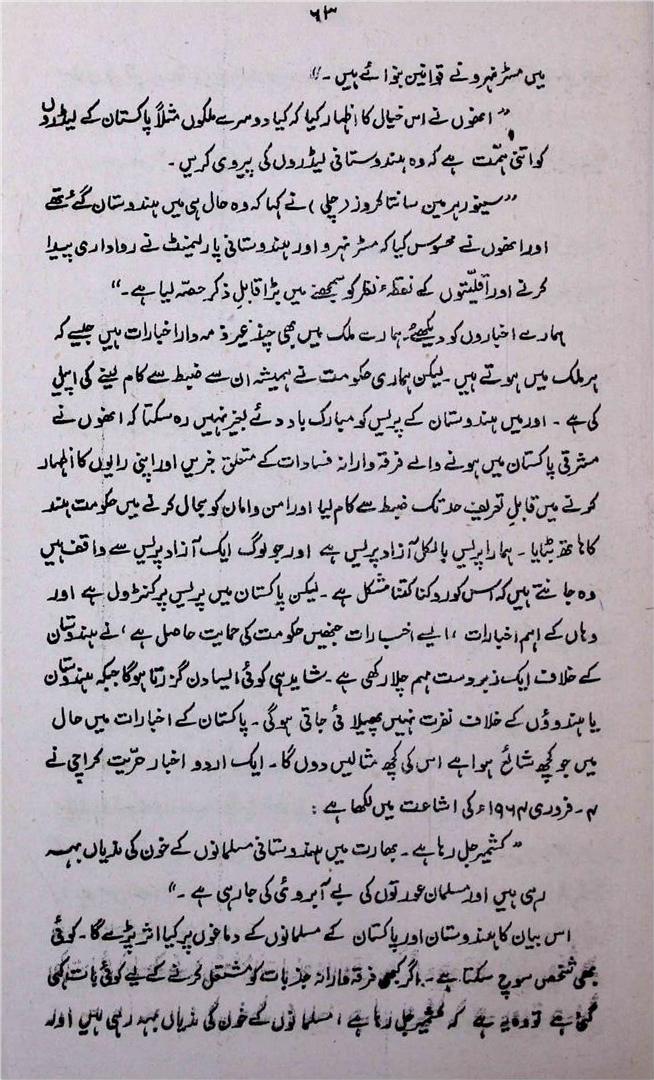 ۶۳
میں مسٹر نہرو نے قوانین بنوائے ہیں۔“
”انھوں نے اس خیال کا اظہار کیا کہ کیا دوسرے ملکوں مثلاً پاکستان کے لیڈروں
کو اتنی ہمّت ہے کہ وہ ہندوستانی لیڈروں کی پیروی کریں۔
”سینور ہرمن سانتا کروز (چلی) نے کہا کہ وہ حال ہی میں ہندوستان گئے تھے
اور انھوں نے محسوس کیا کہ مسٹر نہرو اور ہندوستانی پارلیمنٹ نے رواداری پیدا
کرنے اور اقلیّتوں کے نقطہء نظر کو سمجھنے میں بڑا قابلِ ذکر حصّہ لیا ہے۔“
ہمارے اخباروں کو دیکھئے۔ ہمارے ملک میں بھی چند غیر ذمہ دار اخبارات ہیں جیسے کہ
ہر ملک میں ہوتے ہیں۔ لیکن ہماری حکومت نے ہمیشہ ان سے ضبط سے کام لینے کی اپیل
کی ہے۔ اور میں ہندوستان کے پریس کو مبارک باد دئے بغیر نہیں رہ سکتا کہ انھوں نے
مشرقی پاکستان میں ہونے والے فرقہ وارانہ فسادات کے متعلق خبریں اور اپنی رایوں کا اظہار
کرنے میں قابلِ تعریف حد تک ضبط سے کام لیا اور امن و امان کو بحال کرنے میں حکومت ہند
کا ہاتھ بٹایا۔ ہمارا پریس بالکل آزاد پریس ہے اور جو لوگ ایک آزاد پریس سے واقف ہیں
وہ جانتے ہیں کہ اس کو روکنا کتنا مشکل ہے۔ لیکن پاکستان میں پریس پر کنٹرول ہے اور
وہاں کے اہم اخبارات، ایسے اخبارات جنھیں حکومت کی حمایت حاصل ہے، نے ہندوستان
کے خلاف ایک زبردست مہم چلا رکھی ہے۔ شاید ہی کوئی ایسا دن گزرتا ہوگا جبکہ ہندوستان
یا ہندوؤں کے خلاف نفرت نہیں پھیلائی جاتی ہوگی۔ پاکستان کے اخبارات میں حال
میں جو کچھ شائع ہوا ہے اس کی کچھ مثالیں دوں گا۔ ایک اردو اخبار حرّیت کراچی نے
۴۔ فروری ۱۹۶۴ء کی اشاعت میں لکھا ہے:
”کشمیر جل رہا ہے۔ بھارت میں ہندوستانی مسلمانوں کے خون کی ندیاں بہہ
رہی ہیں اور مسلمان عورتوں کی بے آبروئی کی جا رہی ہے۔“
اس بیان کا ہندوستان اور پاکستان کے مسلمانوں کے دماغوں پر کیا اثر پڑے گا۔ کوئی
بھی شخص سوچ سکتا ہے۔ اگر کبھی فرقہ وارانہ جذبات کو مشتعل کرنے کے لیے کوئی بات کہی
گئی ہے تو وہ یہ ہے کہ کشمیر جل رہا ہے، مسلمانوں کے خون کی ندیاں بہہ رہی ہیں اور